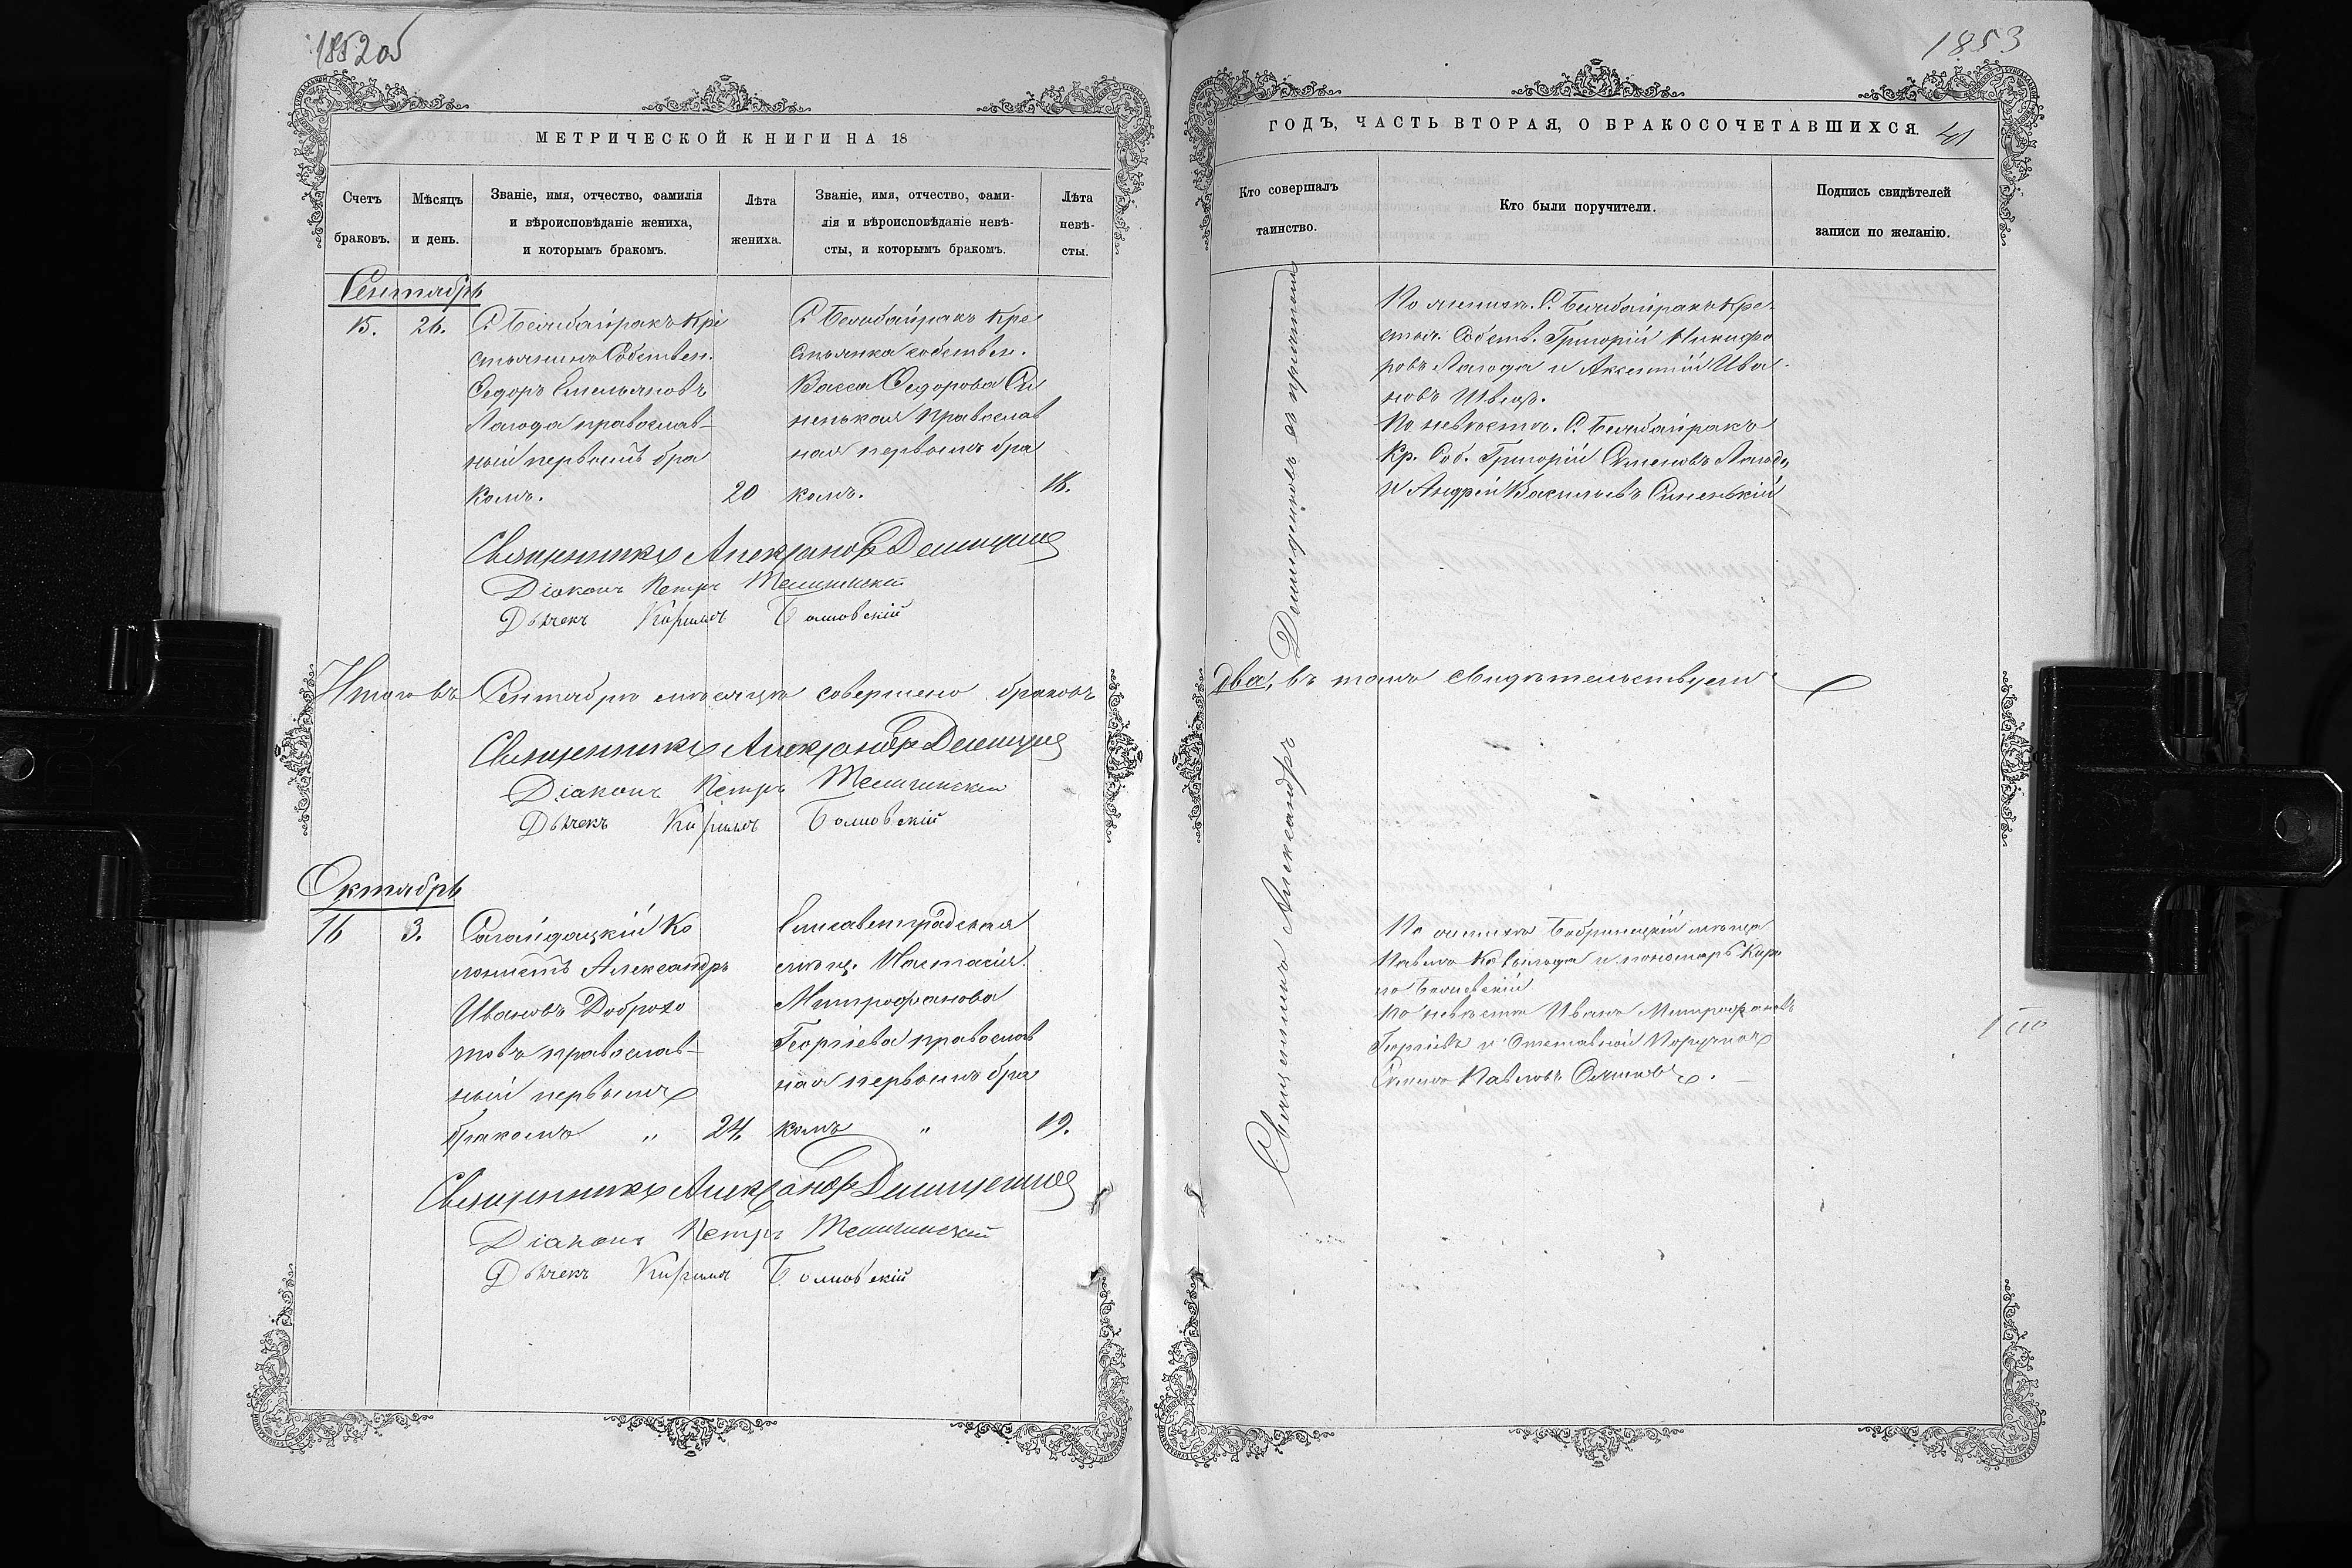 185205
МЕТРИЧЕСКОЙ КНИГИ НА 18
Счетъ браковъ.
Мѣсяцъ и день.
Званіе, имя, отчество, фамилія
и вѣроисповѣданіе жениха,
и которымъ бракомъ.
Лѣта жениха.
Званіе, имя, отчество, фами-
лія и вѣроисповѣданіе невѣ-
сты, и которымъ бракомъ.
Лѣта
невѣ-
сты.
Сентябрь
15. 26.
С. Белибайракъ Кре
стьянинъ Собствен.
Ѳедоръ Емельяновъ
Лагода православ-
ный первымъ бра
комъ. 20
С. Белибайракъ Кре
стьянка собствен.
Васса Ѳедорова Си
ненькая Православ
ная первымъ бра
комъ. 18.
Священникъ Александр
Діаконъ Петръ
Дьячекъ Кириллъ
Итого въ Сентябрѣ мѣсяцѣ совершено браковъ
Священникъ Александр
Діаконъ Петръ
Дьячекъ Кириллъ
Октябрь
16 3.
Сагайдацкій Ко
лонистъ Александръ
Ивановъ Доброхо
товъ православ-
ный первымъ
бракомъ „ 24.
Елисаветградская
мѣщ. Настасія
Митрофанова
Георгіева православ
ная первымъ бра
комъ „ 19.
Священникъ Александр
Діаконъ Петръ
Дьячекъ Кириллъ
1853
ГОДЪ, ЧАСТЬ ВТОРАЯ, О БРАКОСОЧЕТАВШИХСЯ. 41
Кто совершалъ
таинство.
Кто были поручители.
Подпись свидѣтелей
записи по желанію.
Священникъ Александръ съ причтомъ
По женихѣ. С. Белибайракъ Кре-
стьян. Собств. Григорій Никифо
ровъ Лагода и Аксентій Ива-
новъ Швецъ.
По невѣстѣ. С. Белибайракъ
Кр. Соб. Григорій Семеновъ Лагода
и Андрей Васильевъ Синенькій
два, въ томъ свидѣтельствуемъ
По женихѣ Бобринецкій мѣщан
Павелъ и пономарь Кири
По невѣстѣ Иванъ Митрофановъ
Георгіевъ и Отставной Поручикъ
Павловъ